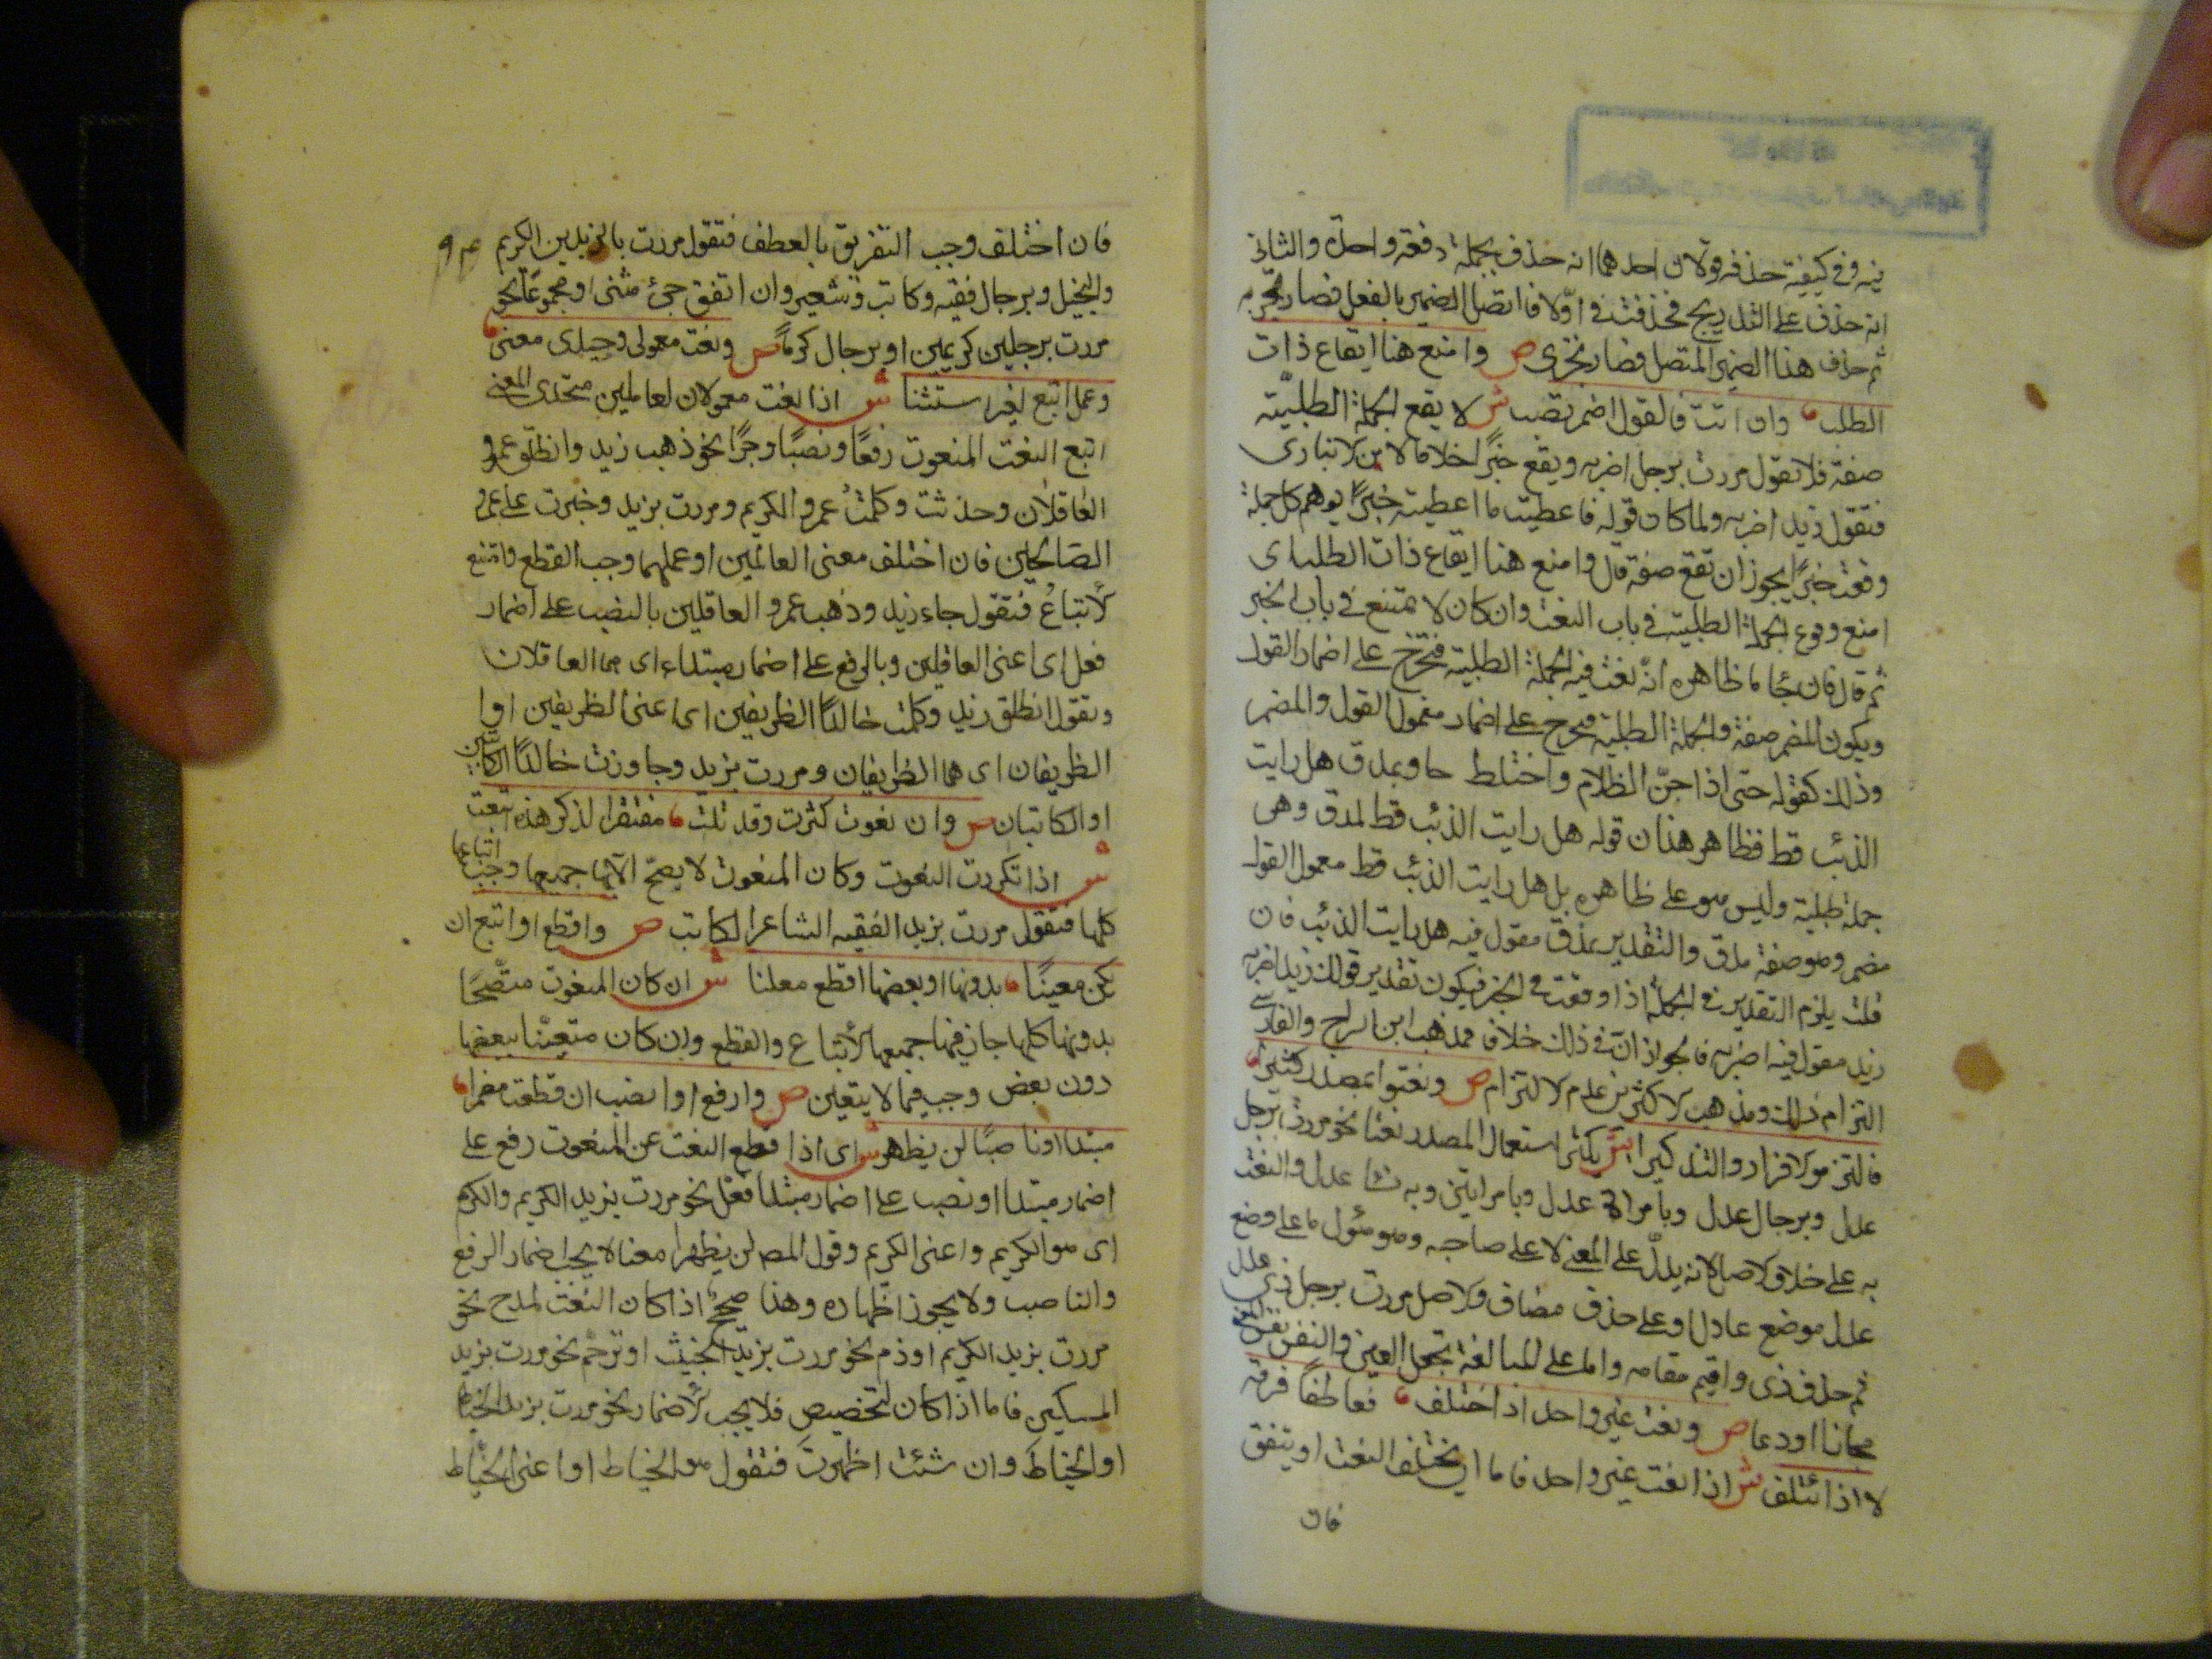 فيه وفي كيفية حذفه قولان احدهما انه حذف بجملته دفعة واحدة والثاني
انه حذف على التدريج فحذفت في اولا فاتصل الضمير بالفعل فصار تجزيه
ثم حذف هذا الضمير المتصل فصار تجزى ص وامنع هنا ايقاع ذات
الطلب وان اتت فالقول اضمر تصب ش لا يقع الجملة الطلبيّة
صفة فلا تقول مررت برجل اضربه ويقع خبرًا خلافا لابن الانباري
فتقول زيد اضربه ولما كان قوله فاعطيت ما اعطيته خبرًا يوهم كل جملة
وقعت خبرًا يجوز ان تقع صفة قال وامنع هنا ايقاع ذات الطلب اى
امنع وقوع الجملة الطلبية في باب النعت وان كان لا يمتنع في باب الخبر
ثم قال فان جاء ما ظاهره انّه نعت فيه الجملة الطلبية فتخرج على اضمار القول
ويكون المضمر صفة والجملة الطلبية فتخرج على اضمار مفمول القول والمضمر
وذلك كقوله حتى اذا جنّ الظلام واختلط جاو بمذق هل رايت
الذئب قط فظاهر هذا ان قوله هل رايت الذئب قط لمذق وهى
جملة طلبية وليس هو على ظاهره بل هل رايت الذئب قط معمول القول
مضمر وهو صفة مذق والتقدير بمذق مقول فيه هل رايت الذئب فان
قلت يلزم التقدير في الجملة اذا وقعت في الخبر فيكون تقدير قولك زيد اضربه
زيد مقول فيه اضربه فالجواز ان في ذلك خلاف فمذهب ابن السراج والفارسي
التزام ذلك ومذهب الاكثرين عدم الالتزام ص ونعتوا بمصدر كثيرا
فالتزموا الافراد والتذكيرا ش يكثر استعمال المصدر نعتا نحو مررت برجل
عدل وبرجال عدل وبامراة عدل وبامراتين وبه نسا عدل والنعت
به على خلاف الاصل لانه يدلّ على المعنى لا على صاحبه وهو مئول ما على وضع
عدل موضع عادل او على حذف مضاف والاصل مررت برجل ذى عدل
ثم حذف ذى واقيم مقامه واما على المبالغة بجعل العين والنفس نفس المعنى
مجازا او دعا ص ونعت غير واحد اذا اختلف فعاطفا فرقه
لا اذا ئتلف ش اذا نعت غير واحد فاما ان يختلف النعت او يتفق
فان
فان اختلف وجب التفريق بالعطف فتقول مررت بالزيدين الكريم
والبخيل وبرجال فقيه وكاتب وشعير وان اتفق جئ مثنى او مجموعًا نحو
مررت برجلين كريمين او برجال كرما ص ونعت معمولى وحيدى معنى
وعمل اتبع لغير استثنا ش اذا نعت معمولان لعاملين متحدى المعنى
اتبع النعت المنعوت رفعًا ونصبًا وجرًا نحو ذهب زيد وانطلق عمرو
العاقلان وحدثت وكلمتُ عمرو الكريم ومررت بزيد وخبرت على عمرو
الصالحين فان اختلف معنى العاملين او عملهما وجب القطع وامتنع
الاتباع فتقول جاء زيد وذهب عمرو العاقلين بالنصب على اضمار
فعل اى اعنى العاقلين وبالرفع على اضمار مبتداء اى هما العاقلان
وتقول انطلق زيد وكلمت خالدًا الظريفين اى اعنى الظريفين اوا
الظريفان اى هما الظريفان ومررت بزيد وجاوزت خالدًا الكاتبين
او الكاتبان ص وان نعوت كثرت وقد تلت مفتقرا لذكرهن اتبعت
ش اذا تكررت النعوت وكان المنعوت لا يصحّ الا بها جميعها وجب اتباعها
كلها فتقول مررت بزيد الفقيه الشاعر الكاتب ص واقطع او اتبع ان
يكن معينًا بدونها او بعضها اقطع معلنا ش ان كان المنعوت متضّحًا
بدونها كلها جاز فيها جميعها الاتباع والقطع وان كان متعيّنا ببعضها
دون بعض وجب فيما لا يتعين ص وارفع او انصب ان قطعت مضمرا
مبتدا او ناصبًا لن يظهر ش اى اذا قطع النعت عن المنعوت رفع على
اضمار مبتدا او نصب على اضمار مبتدا فعل نحو مررت بزيد الكريم والكريم
اى هو الكريم واعنى الكريم وقول المص لن يظهرا معناه يجب اضمار الرفع
والناصب ولا يجوز اظهاره وهذا صحيح اذا كان النعت لمدح نحو
مررت بزيد الكريم او ذم نحو مررت بزيد الخبيث او ترحّم نحو مررت بزيد
المسكين فاما اذا كان لتخصيص فلا يجب الاضمار نحو مررت بزيد الخياط
او الخياطَ وان شئت اظهرت فتقول هو الخياط او اعنى الخيّاط